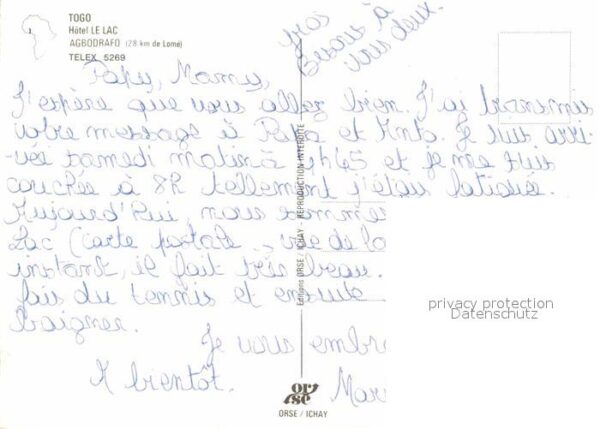 TOGO
Hôtel LE LAC
AGBODRAFO (28 km de Lomé)
TELEX 5269
gros
Bisous à
vous deux.
Papy, Mamy,
J'espère que vous allez bien. J'ai transmis
votre message à Papa et Knto. Je suis arri-
vée samedi matin à 4h45 et je me suis
couchée à 8h tellement j'étais fatiguée.
Aujourd'hui, nous sommes
Lac (carte postale, vue de la
instant, il fait très beau.
fais du tennis et ensuite
baigner.
Je vous embra
A bientôt.
Mar
Editions ORSE / ICHAY - REPRODUCTION INTERDITE
or
se
ORSE / ICHAY
privacy protection
Datenschutz